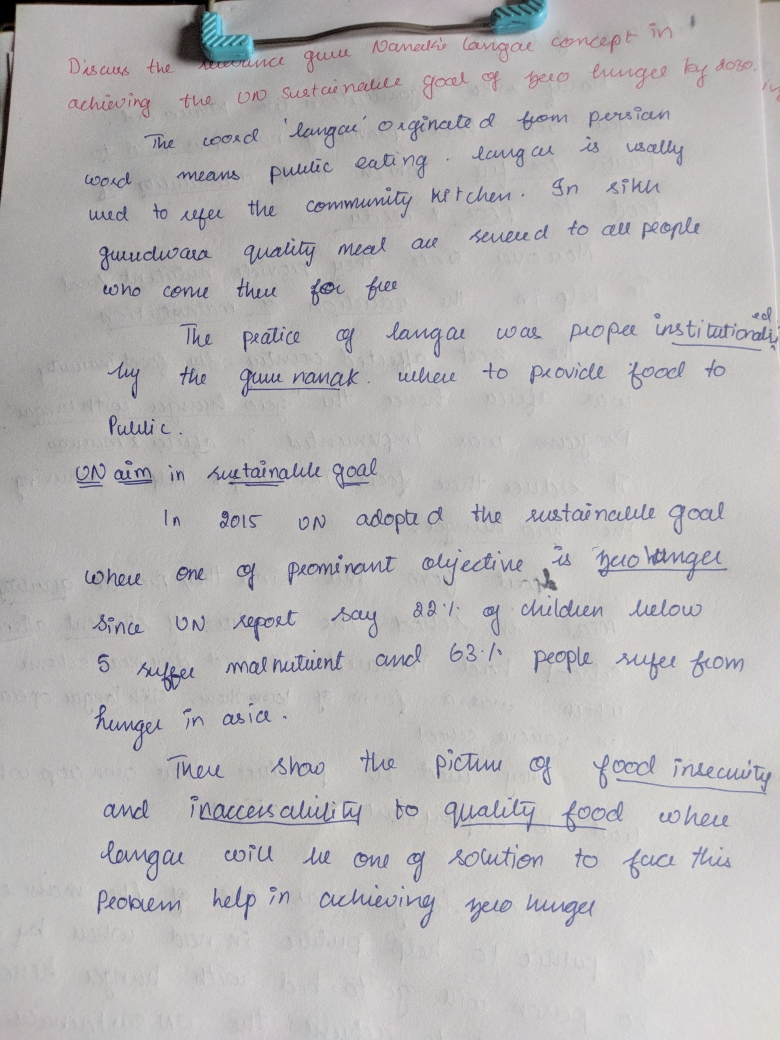 Discuss the guru Nanak's langar concept in
achieving the UN sustainable goal of zero hunger by 2030.
The word 'langar' orginated from persian
word means public eating. langar is usally
used to refer the community kitchen. In sikh
gurudwara quality meal are served to all people
who come there for free
The pratice of langar was proper institutionalized
by the guru nanak. where to provide food to
Public.
UN aim in sustainable goal
In 2015 UN adopted the sustainable goal
where one of prominant objective is zero hunger
since UN report say 22% of children below
5 suffer malnutrient and 63% people sufer from
hunger in asia.
There show the picture of food insecurity
and inaccersability to quality food where
langar will be one of solution to face this
Problem help in achieving zero hunger